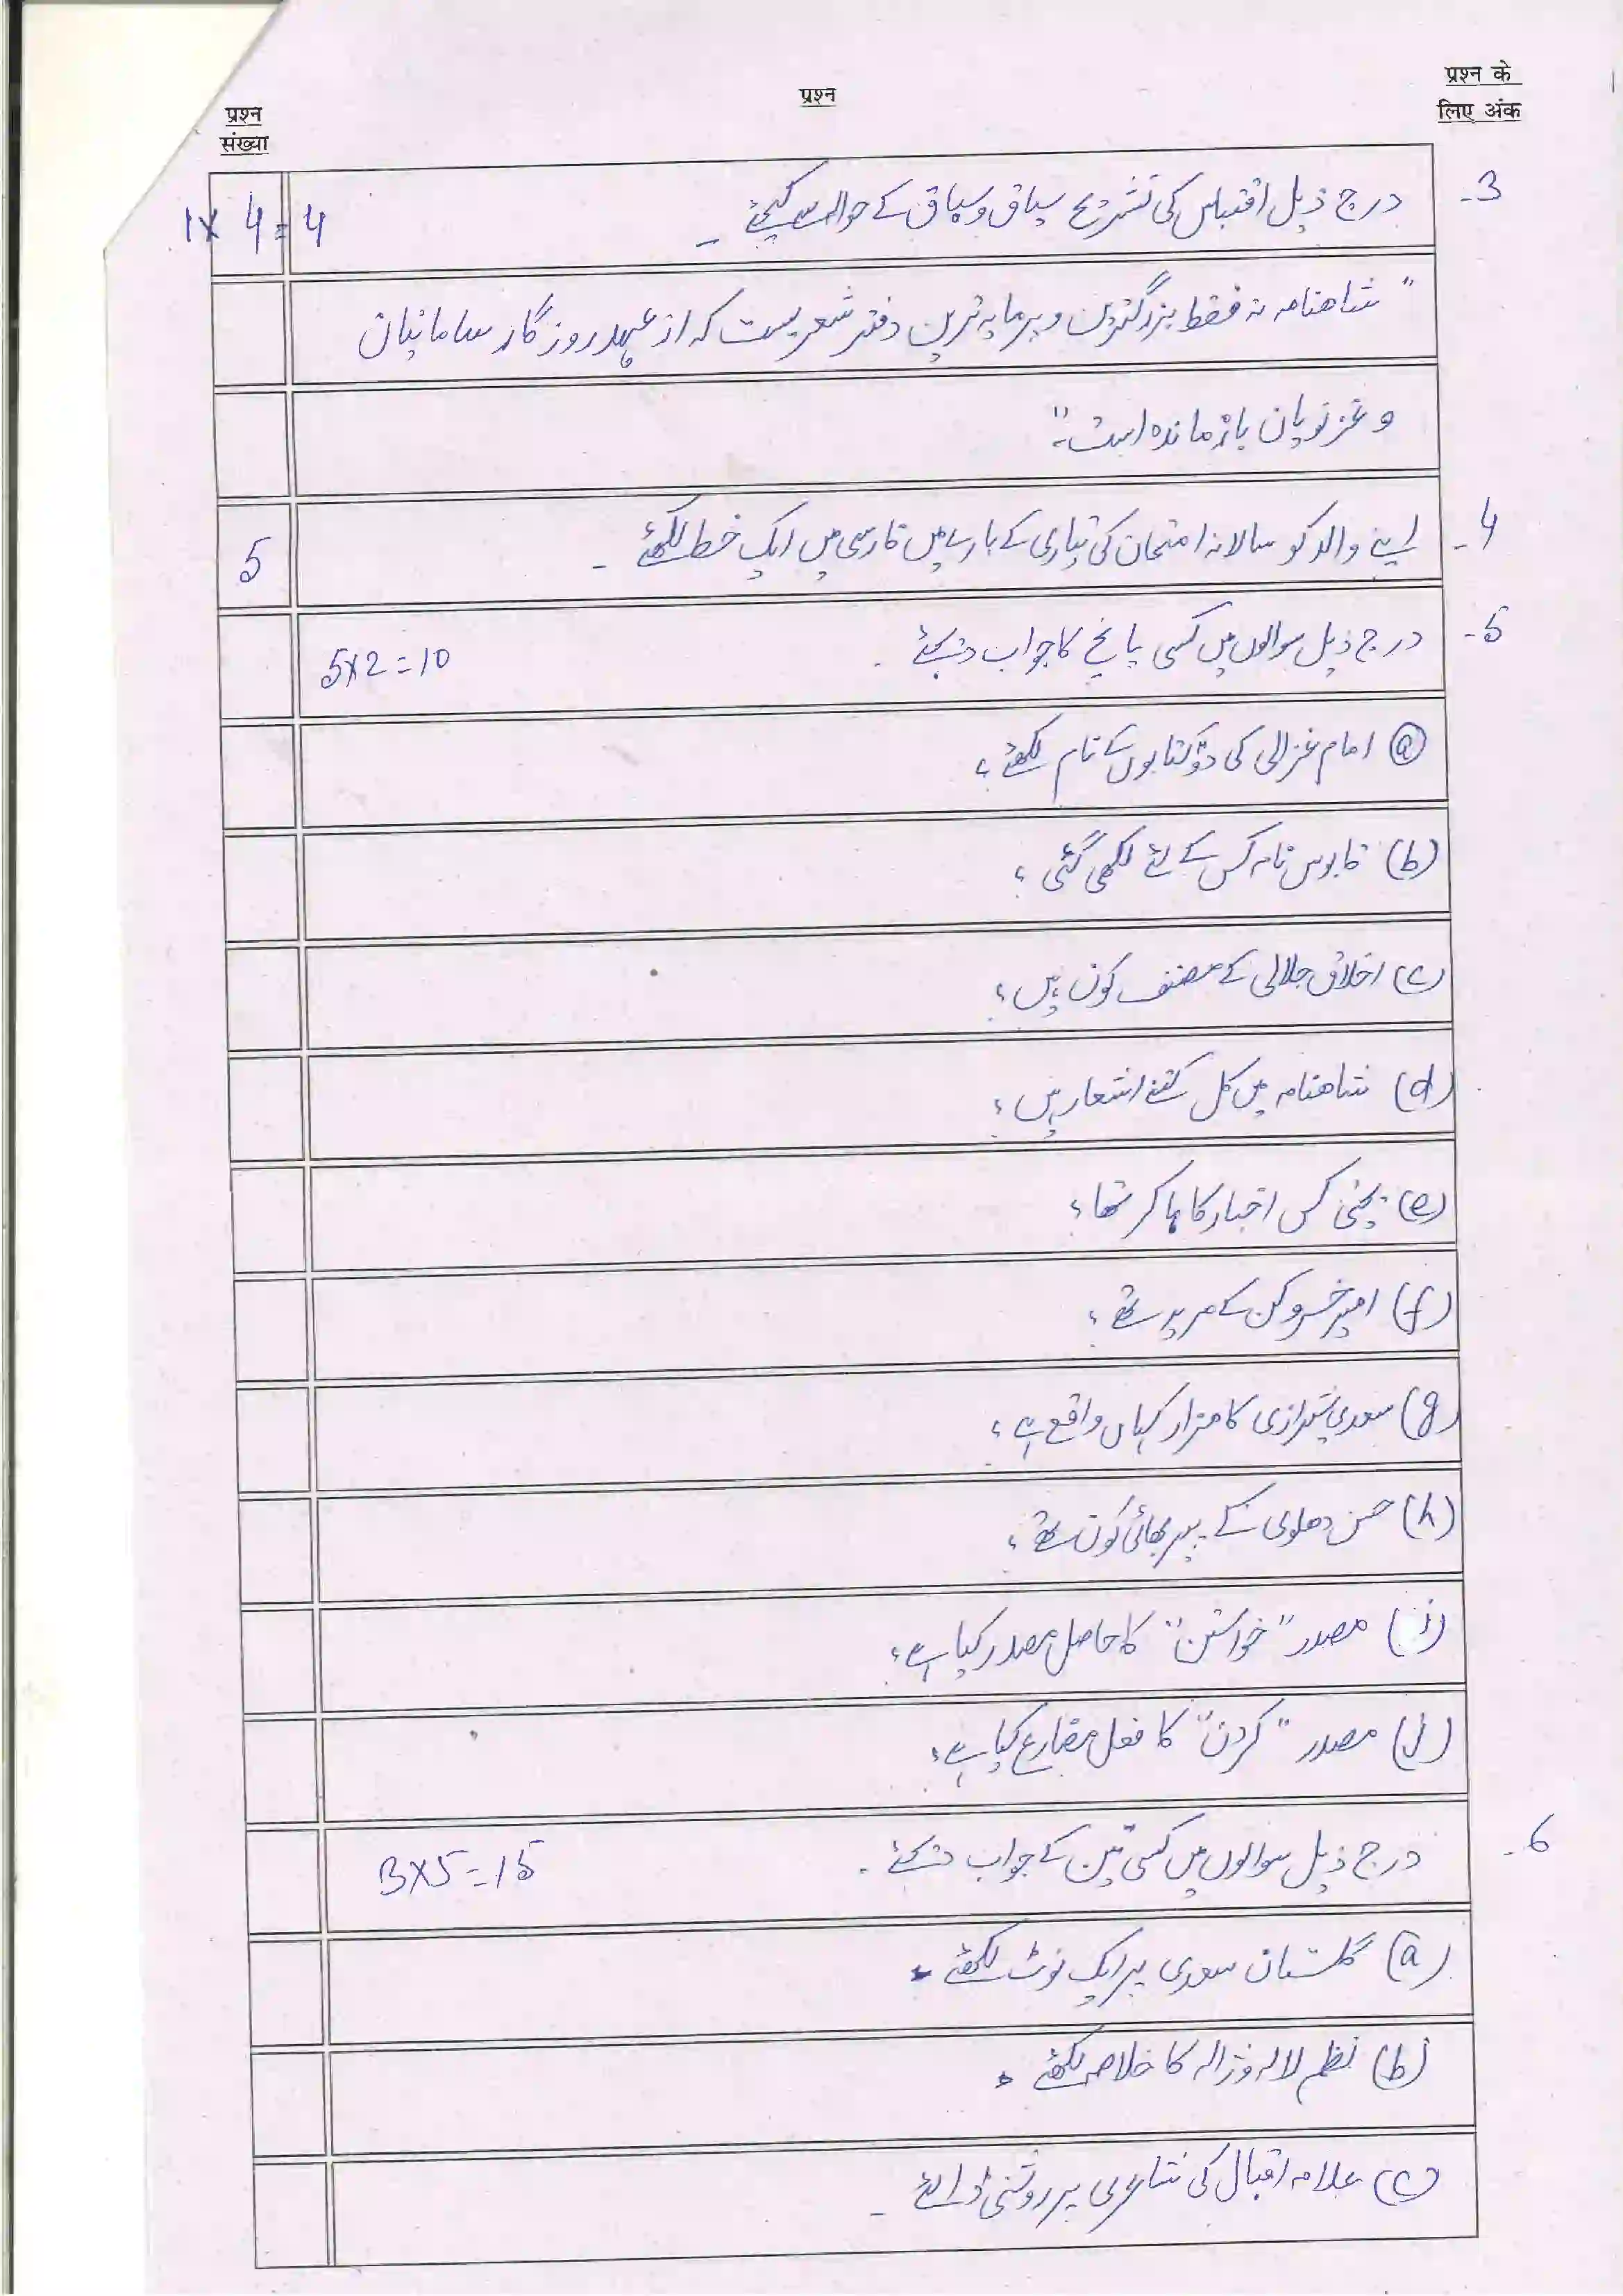 प्रश्न के
लिए अंक
प्रश्न
प्रश्न
संख्या
3- درج ذیل اقتباس کی تشریح سیاق و سباق کے حوالہ سے کیجئے ۔ 1x4=4
"شاهنامہ نہ فقط بزرگترین و پر مایہ ترین دفتر شعریست کہ از عہد روزگار سامانیان
و غزنویان باز ماندہ است۔"
4- اپنے والد کو سالانہ امتحان کی تیاری کے بارے میں فارسی میں ایک خط لکھئے ۔ 5
5- درج ذیل سوالوں میں کسی پانچ کا جواب دیجئے ۔ 5x2=10
(a) امام غزالی کی دو کتابوں کے نام لکھئے ؟
(b) قابوس نامہ کس کے لئے لکھی گئی ؟
(c) اخلاق جلالی کے مصنف کون ہیں ؟
(d) شاهنامہ میں کل کتنے اشعار ہیں ؟
(e) کس اخبار کا ہاکر تھا ؟
(f) امیر خسرو کن کے مرید تھے ؟
(g) سعدی شیرازی کا مزار کہاں واقع ہے ؟
(h) حسن دھلوی کے پیر بھائی کون تھے ؟
(i) مصدر "خواستن" کا حاصل مصدر کیا ہے ؟
(j) مصدر "کردن" کا فعل مضارع کیا ہے ؟
6- درج ذیل سوالوں میں کسی تین کے جواب دیجئے ۔ 3x5=15
(a) گلستان سعدی پر ایک نوٹ لکھئے ۔
(b) نظم لالہ و ژالہ کا خلاصہ لکھئے ۔
(c) علامہ اقبال کی شاعری پر روشنی ڈالئے ۔